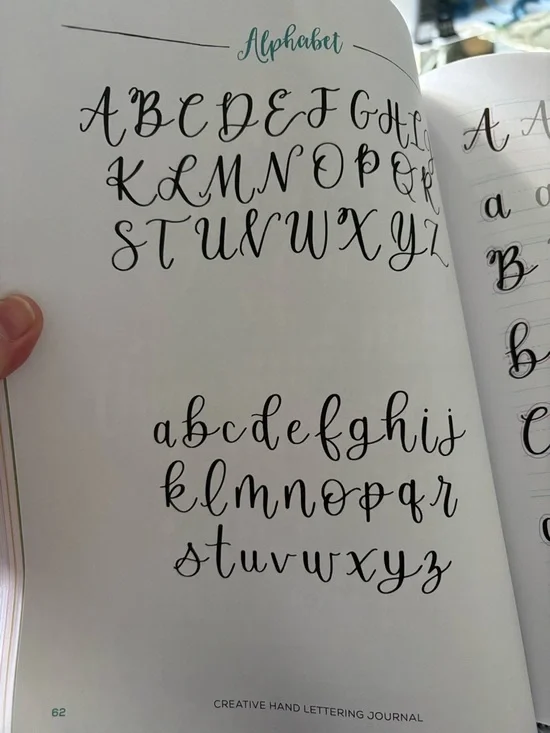 Alphabet
ABCDEFGHIJ
KLMNOPQR
STUVWXYZ
abcdefghij
klmnopqr
stuvwxyz
62
CREATIVE HAND LETTERING JOURNAL
A A
a a
B
b
C